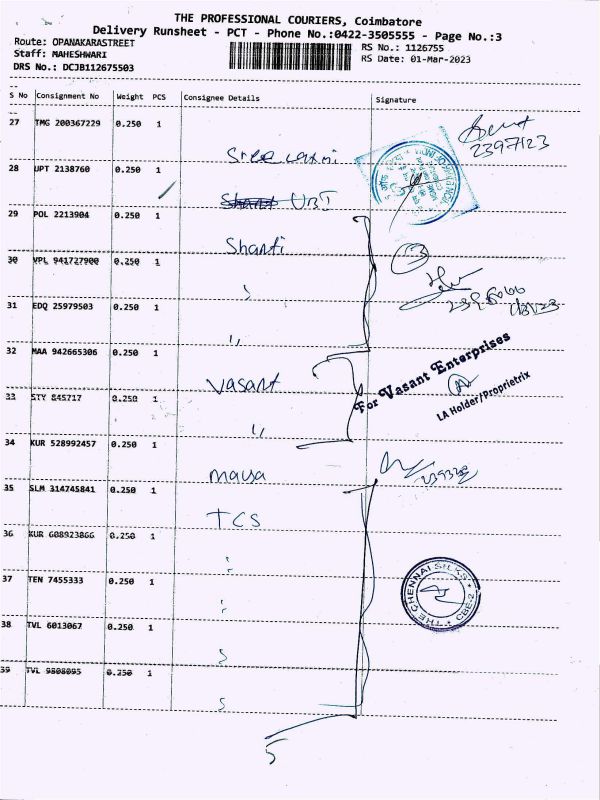 THE PROFESSIONAL COURIERS, Coimbatore
Delivery Runsheet - PCT - Phone No.:0422-3505555 - Page No.:3
Route: OPANAKARASTREET
RS No.: 1126755
Staff: MAHESHWARI
RS Date: 01-Mar-2023
DRS No.: DCJB112675503
S No Consignment No Weight PCS Consignee Details Signature
27 TMG 200367229 0.250 1
Sree Laxmi
2397123
28 UPT 2138760 0.250 1
UBI
29 POL 2213904 0.250 1
Shanti
30 VPL 941727900 0.250 1
3
31 EDQ 25979503 0.250 1
"
32 MAA 942665306 0.250 1
Vasant
For Vasant Enterprises
LA Holder/Proprietrix
33 STY 845717 0.250 1
"
34 KUR 528992457 0.250 1
maya
35 SLM 314745841 0.250 1
TCS
36 KUR 608923866 0.250 1
37 TEN 7455333 0.250 1
THE CHENNAI SILKS
CBE-2
38 TVL 6013067 0.250 1
39 TVL 9808095 0.250 1
5